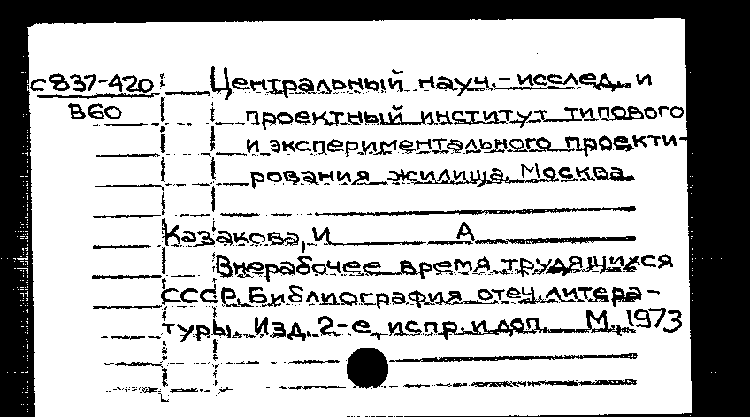 с837-420 Центральный науч.-исслед. и
В60 проектный институт типового
и экспериментального проекти-
рования жилища. Москва.
Казакова, И А
Внерабочее время трудящихся
СССР. Библиография отеч. литера-
туры. Изд. 2-е, испр. и доп. М., 1973